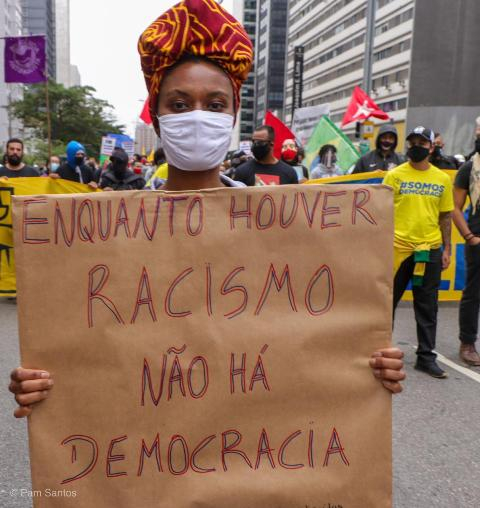 #SOMOS
DEMOCRACIA
ENQUANTO HOUVER
RACISMO
NÃO HÁ
DEMOCRACIA
© Pam Santos